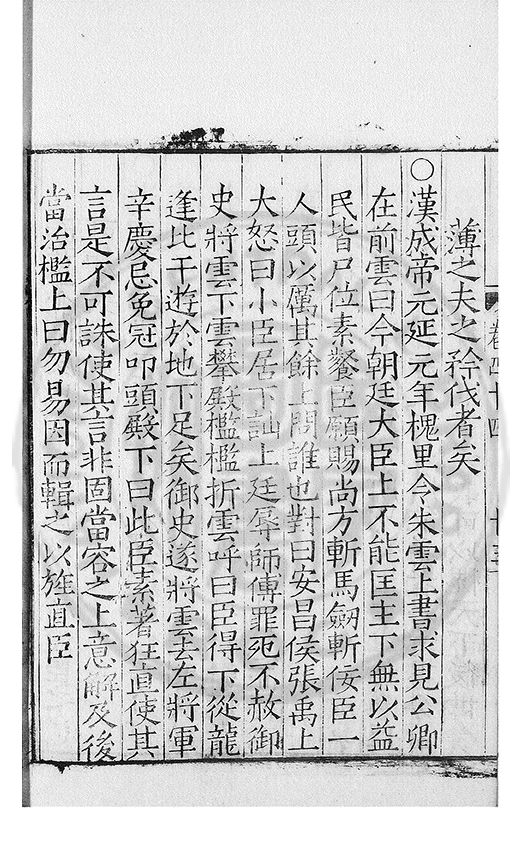 卷四十四
十三
薄之夫之矜伐者矣
○漢成帝元延元年槐里令朱雲上書求見公卿
在前雲曰今朝廷大臣上不能匡主下無以益
民皆尸位素餐臣願賜尚方斬馬劔斬佞臣一
人頭以厲其餘上問誰也對曰安昌侯張禹上
大怒曰小臣居下訕上廷辱師傅罪死不赦御
史將雲下雲攀殿檻檻折雲呼曰臣得下從龍
逢比干遊於地下足矣御史遂將雲去左將軍
辛慶忌免冠叩頭殿下曰此臣素著狂直使其
言是不可誅使其言非固當容之上意解及後
當治檻上曰勿易因而輯之以旌直臣